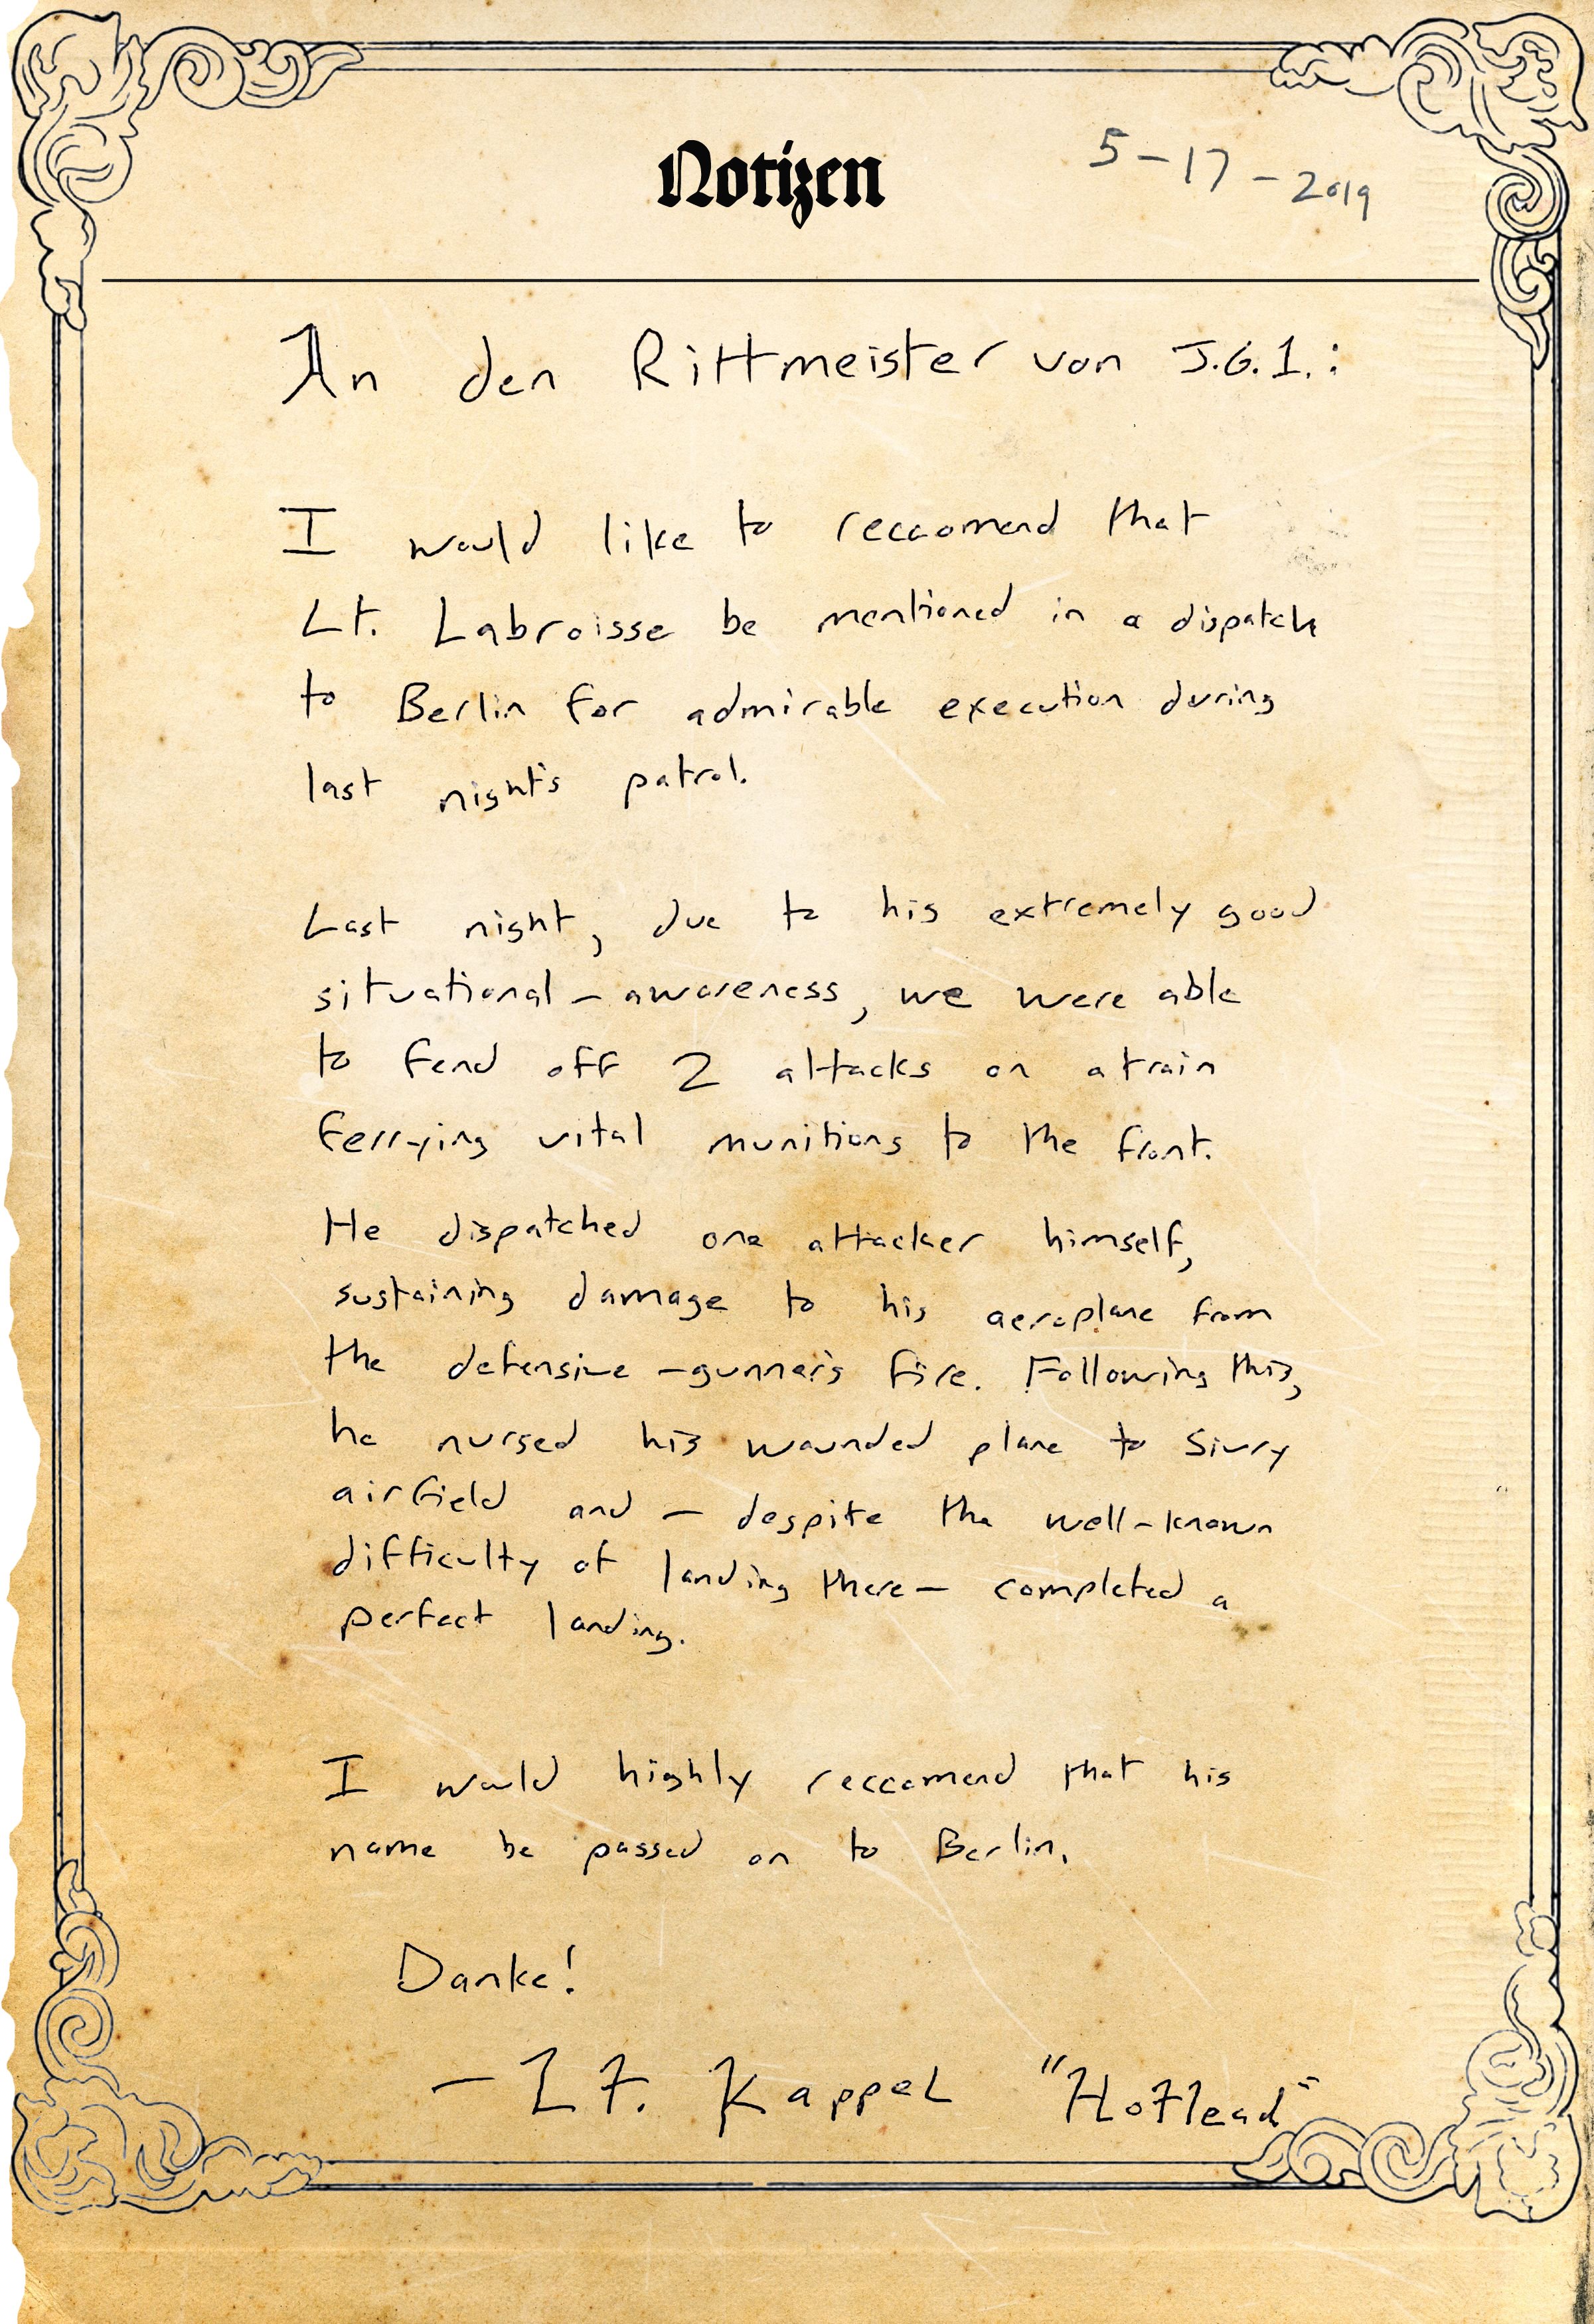 Notizen
5-17-2019
An den Rittmeister von J.G.1.:
I would like to reccomend that
Lt. Labroisse be mentioned in a dispatch
to Berlin for admirable execution during
last night's patrol.
Last night, due to his extremely good
situational-awareness, we were able
to fend off 2 attacks on a train
ferrying vital munitions to the front.
He dispatched one attacker himself,
sustaining damage to his aeroplane from
the defensive-gunner's fire. Following this,
he nursed his wounded plane to Sivry
airfield and - despite the well-known
difficulty of landing there - completed a
perfect landing.
I would highly reccomend that his
name be passed on to Berlin.
Danke!
- Lt. Kappel "Hotlead"